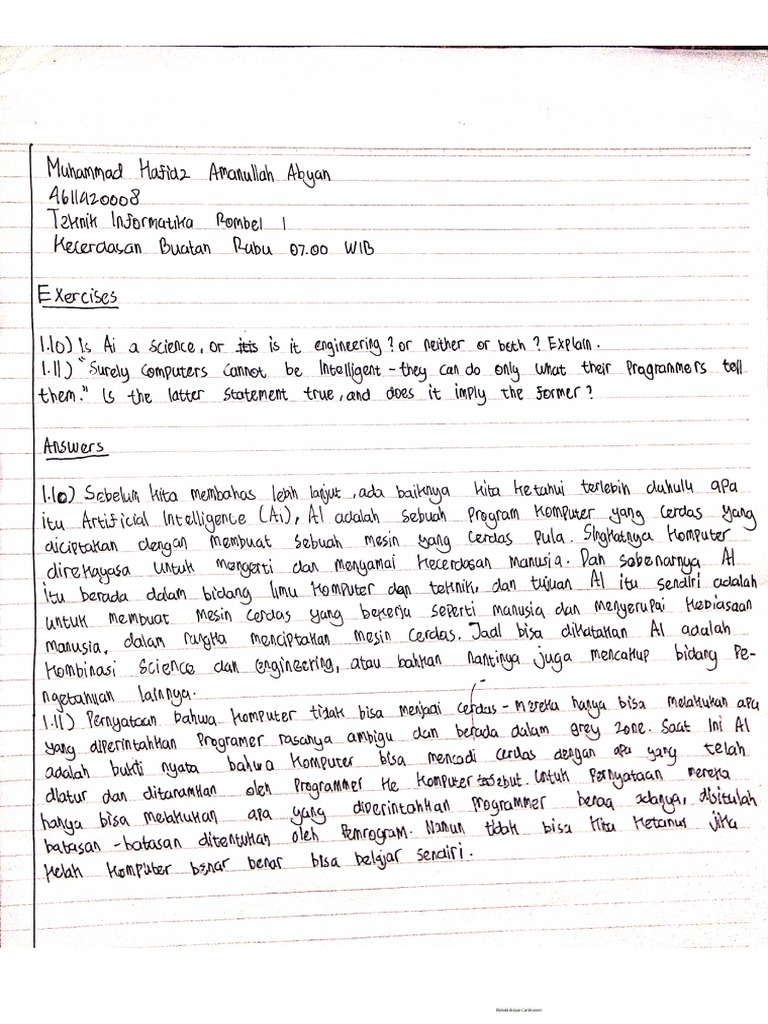 Muhammad Hafidz Amanullah Abyan
4611420008
Teknik Informatika Rombel 1
Kecerdasan Buatan Rabu 07.00 WIB
Exercises
1.10) Is Ai a science, or is it engineering? or neither or both? Explain.
1.11) "Surely computers cannot be Intelligent - they can do only what their Programmers tell
them." Is the latter statement true, and does it imply the former?
Answers
1.10) Sebelum kita membahas lebih lanjut, ada baiknya kita ketahui terlebih duhulu apa
itu Artificial Intelligence (Ai), AI adalah sebuah program komputer yang cerdas yang
diciptakan dengan membuat sebuah mesin yang cerdas pula. Singkatnya komputer
direkayasa untuk mengerti dan menyamai kecerdasan manusia. Dan sebenarnya AI
itu berada dalam bidang ilmu komputer dan teknik, dan tujuan AI itu sendiri adalah
untuk membuat mesin cerdas yang bekerja seperti manusia dan menyerupai kebiasaan
manusia, dalam rangka menciptakan mesin cerdas. Jadi bisa dikatakan AI adalah
kombinasi science dan engineering, atau bahkan nantinya juga mencakup bidang pe-
ngetahuan lainnya.
1.11) Pernyataan bahwa komputer tidak bisa menjadi cerdas - mereka hanya bisa melakukan apa
yang diperintahkan programer rasanya ambigu dan berada dalam grey zone. Saat ini AI
adalah bukti nyata bahwa komputer bisa mencadi cerdas dengan apa yang telah
diatur dan ditanamkan oleh programmer ke komputer tersebut. Untuk pernyataan mereka
hanya bisa melakukan apa yang diperintahkan programmer benar adanya, dibitulah
batasan-batasan ditentukan oleh pemrogram. Namun tidak bisa kita ketahui jika
kelak komputer benar benar bisa belajar sendiri.